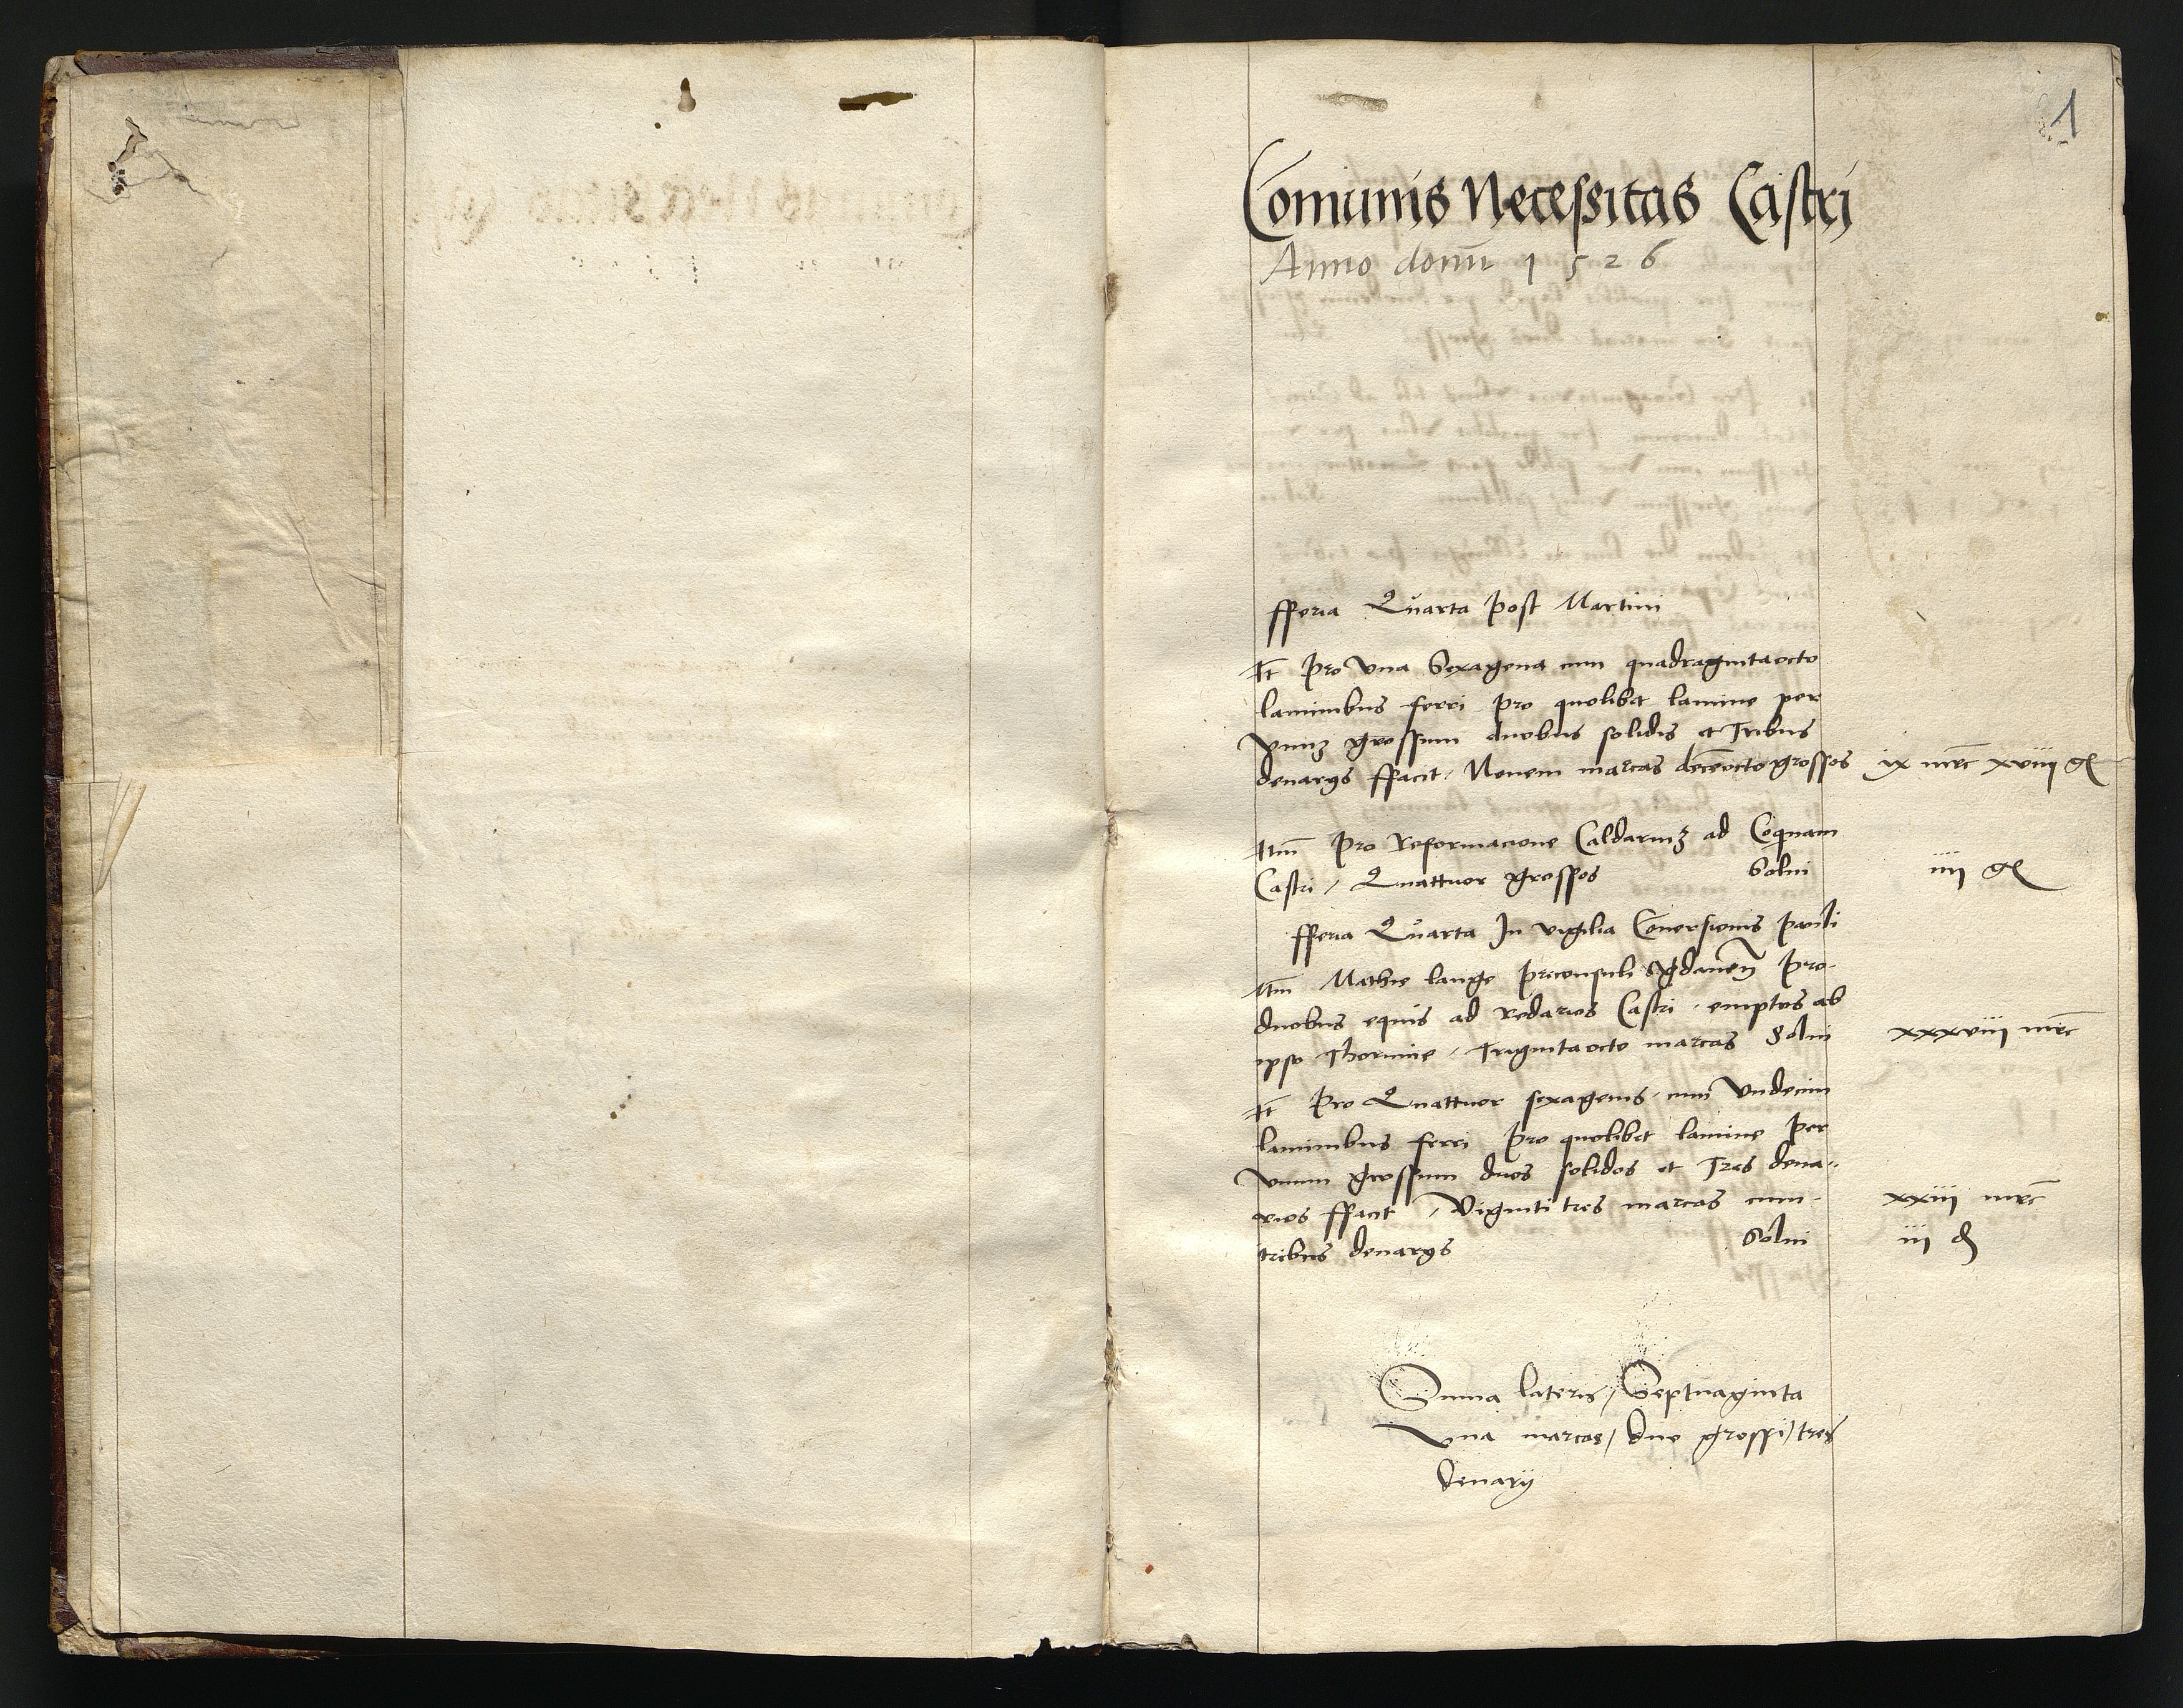 1
Comunis Necessitas Castri
Anno domi 1526
fferia Quarta post Martini
It pro vna Sexagena cum quadragintaocto
laminibus ferri pro quolibet lamine per
vnu3 grossum duobus solidis et Tribus
denarys ffacit, Nouem marcas decēocto grossos ix mrc xviij gl
Itm pro Reformacione Caldariu3 ad Coquam
Castri, Quattuor grossos Solui iiij gl
fferia Quarta In vigilia Conersionis pauli
Itm Mathie lange preconsuli pro
duobus equis ad redarios Castri, emptos ab
ipso Thorunie, Trigintaocto marcas Solui xxxviij mrc
It Pro Quattuor sexagenis, cum vndecim
laminibus ferri pro quolibet lamine per
vnum grossum duos solidos et Tres dena„
rios ffacit, Viginti tres marcas cum xxiij mrc
tribus denarys Solui iij d
Suma lateris, Septuaginta
vna marcas, duo grossi, tres
denarij